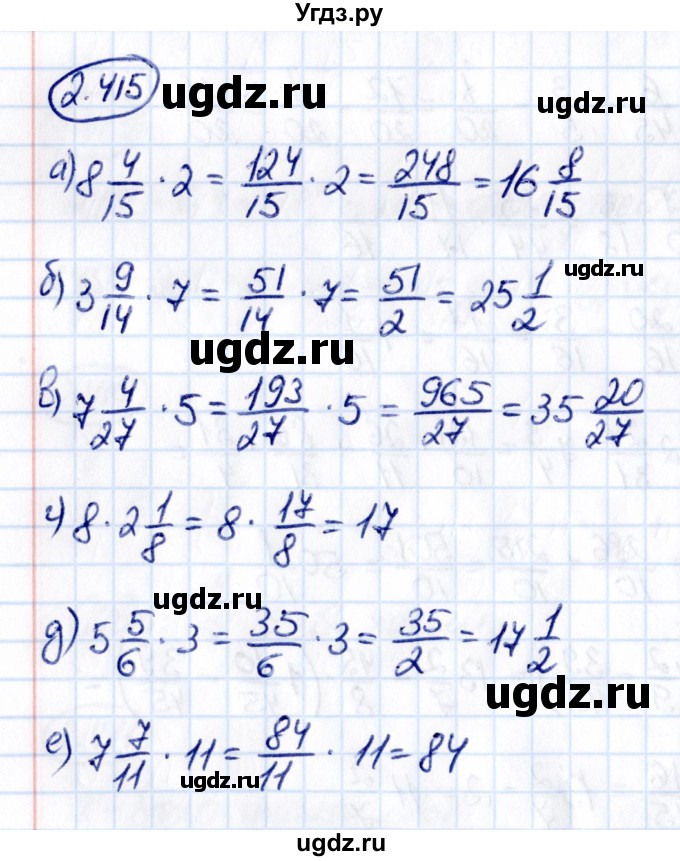 Угдз.ру
2.415 ugdz.ru ugdz.ru
а) 8 4/15 · 2 = 124/15 · 2 = 248/15 = 16 8/15
ugdz.ru
б) 3 9/14 · 7 = 51/14 · 7 = 51/2 = 25 1/2
ugdz.ru
в) 7 4/27 · 5 = 193/27 · 5 = 965/27 = 35 20/27
г) 8 · 2 1/8 = 8 · 17/8 = 17
ugdz.ru
д) 5 5/6 · 3 = 35/6 · 3 = 35/2 = 17 1/2
ugdz.ru
е) 7 7/11 · 11 = 84/11 · 11 = 84
ugdz.ru
ugdz.ru